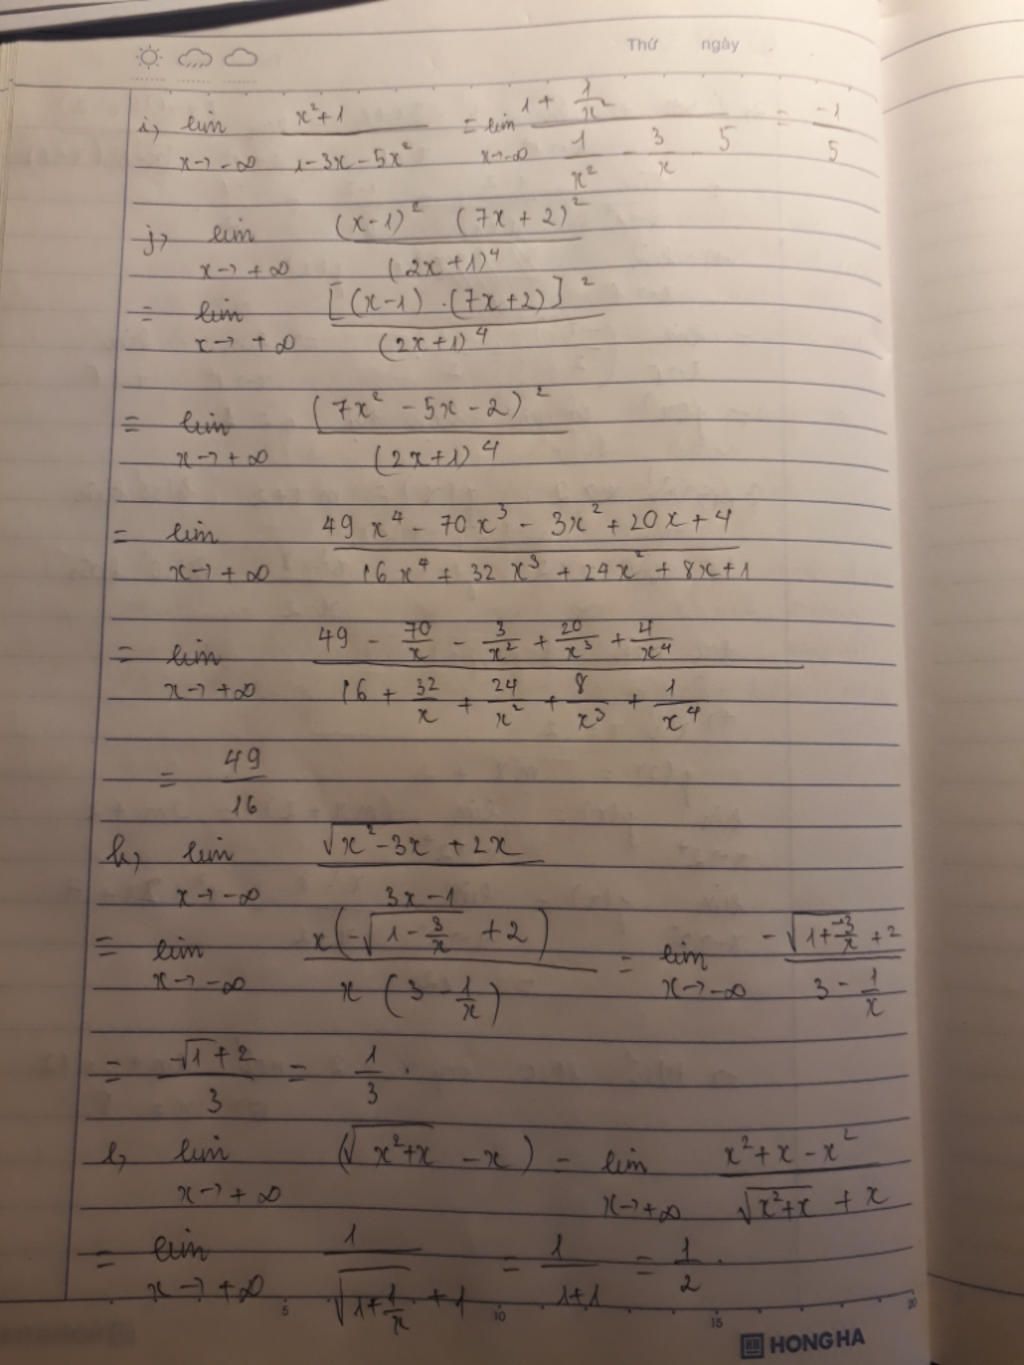 Thứ ngày
i, lim x→-∞ (x²+1)/(1-3x-5x²) = lim x→-∞ (1 + 1/x²)/(1/x² - 3/x - 5) = -1/5
j, lim x→+∞ (x-1)² (7x+2)²/(2x+1)⁴
= lim x→+∞ [(x-1).(7x+2)]²/(2x+1)⁴
= lim x→+∞ (7x² - 5x - 2)²/(2x+1)⁴
= lim x→+∞ (49x⁴ - 70x³ - 3x² + 20x + 4)/(16x⁴ + 32x³ + 24x² + 8x + 1)
= lim x→+∞ (49 - 70/x - 3/x² + 20/x³ + 4/x⁴)/(16 + 32/x + 24/x² + 8/x³ + 1/x⁴)
= 49/16
k, lim x→-∞ (√(x²-3x) + 2x)/(3x-1)
= lim x→-∞ x(-√(1 - 3/x) + 2)/(x(3 - 1/x)) = lim x→-∞ (-√(1 + -3/x) + 2)/(3 - 1/x)
= (-√1 + 2)/3 = 1/3.
l, lim x→+∞ (√(x²+x) - x) = lim x→+∞ (x² + x - x²)/(√(x²+x) + x)
= lim x→+∞ 1/(√(1 + 1/x) + 1) = 1/(1+1) = 1/2.
5 10 15 20
HONG HA